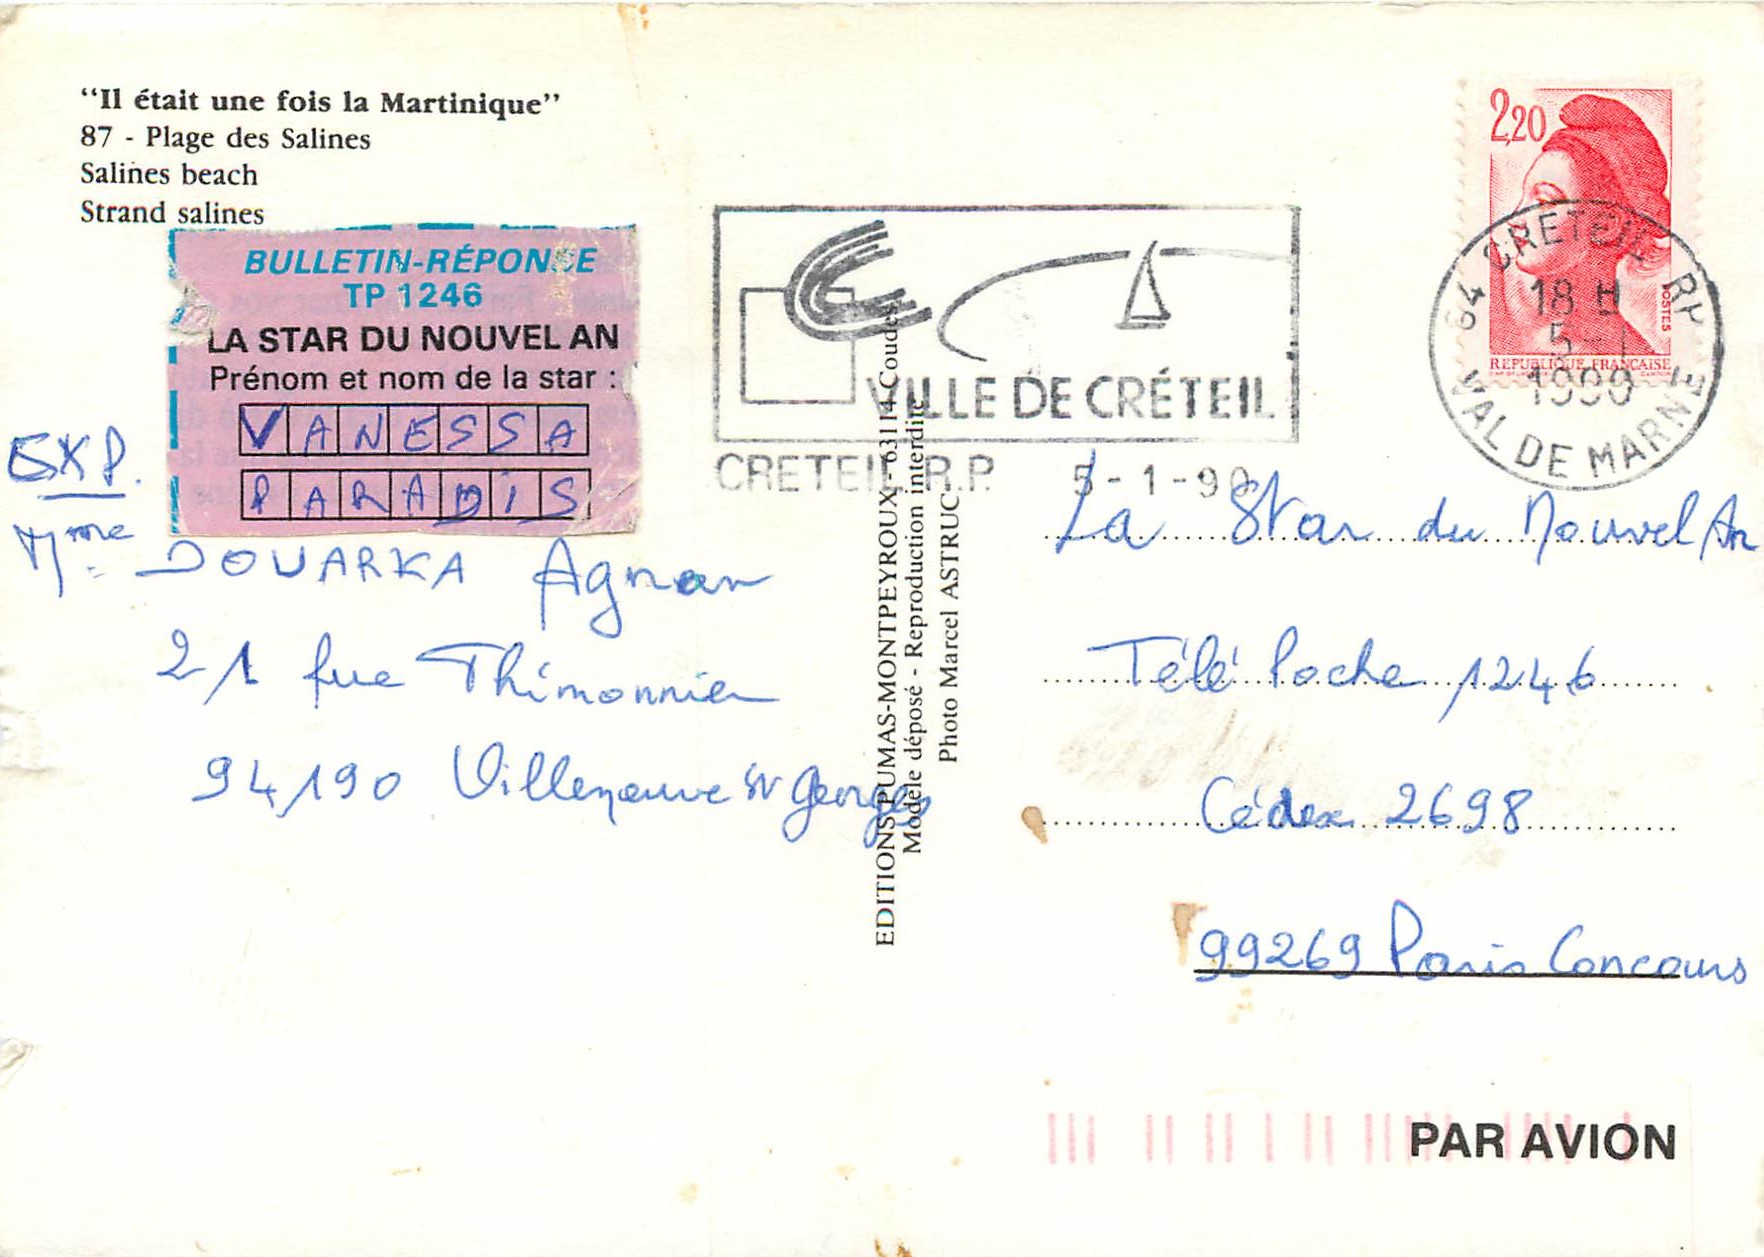 “Il était une fois la Martinique”
87 - Plage des Salines
Salines beach
Strand salines
BULLETIN-RÉPONSE
TP 1246
LA STAR DU NOUVEL AN
Prénom et nom de la star :
VANESSA
PARADIS
EXP.
Mme DOUARKA Agnan
21 rue Thimonnier
94190 Villeneuve St Georges
EDITIONS PUMAS-MONTPEYROUX - 63114 Coudes
Modèle déposé - Reproduction interdite
Photo Marcel ASTRUC
VILLE DE CRÉTEIL
CRETEIL R.P. 5-1-90
2,20
POSTES
REPUBLIQUE FRANÇAISE
94 CRETEIL RP
18 H
5-1
1990
VAL DE MARNE
La Star du Nouvel An
Télé Poche 1246
Cédex 2698
99269 Paris Concours
PAR AVION